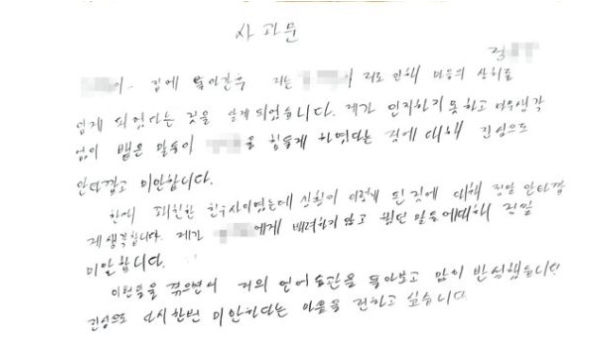 사과문
정
가 집에 돌아간후 저는 가 저로 인해 마음의 상처를
입게 되었다는 것을 알게되었습니다. 제가 인지하지 못하고 아무생각
없이 뱉은 말들이 을 힘들게 하였다는 것에 대해 진심으로
안타깝고 미안합니다.
한때 친한 친구사이였는데 상황이 이렇게 된것에 대해 정말 안타깝
게생각합니다. 제가 에게 배려하지 않고 했던 말들에대해 정말
미안합니다.
이런일들을 겪으면서 저의 언어습관을 돌아보고 많이 반성했습니다
진심으로 다시한번 미안하다는 마음을 전하고 싶습니다.